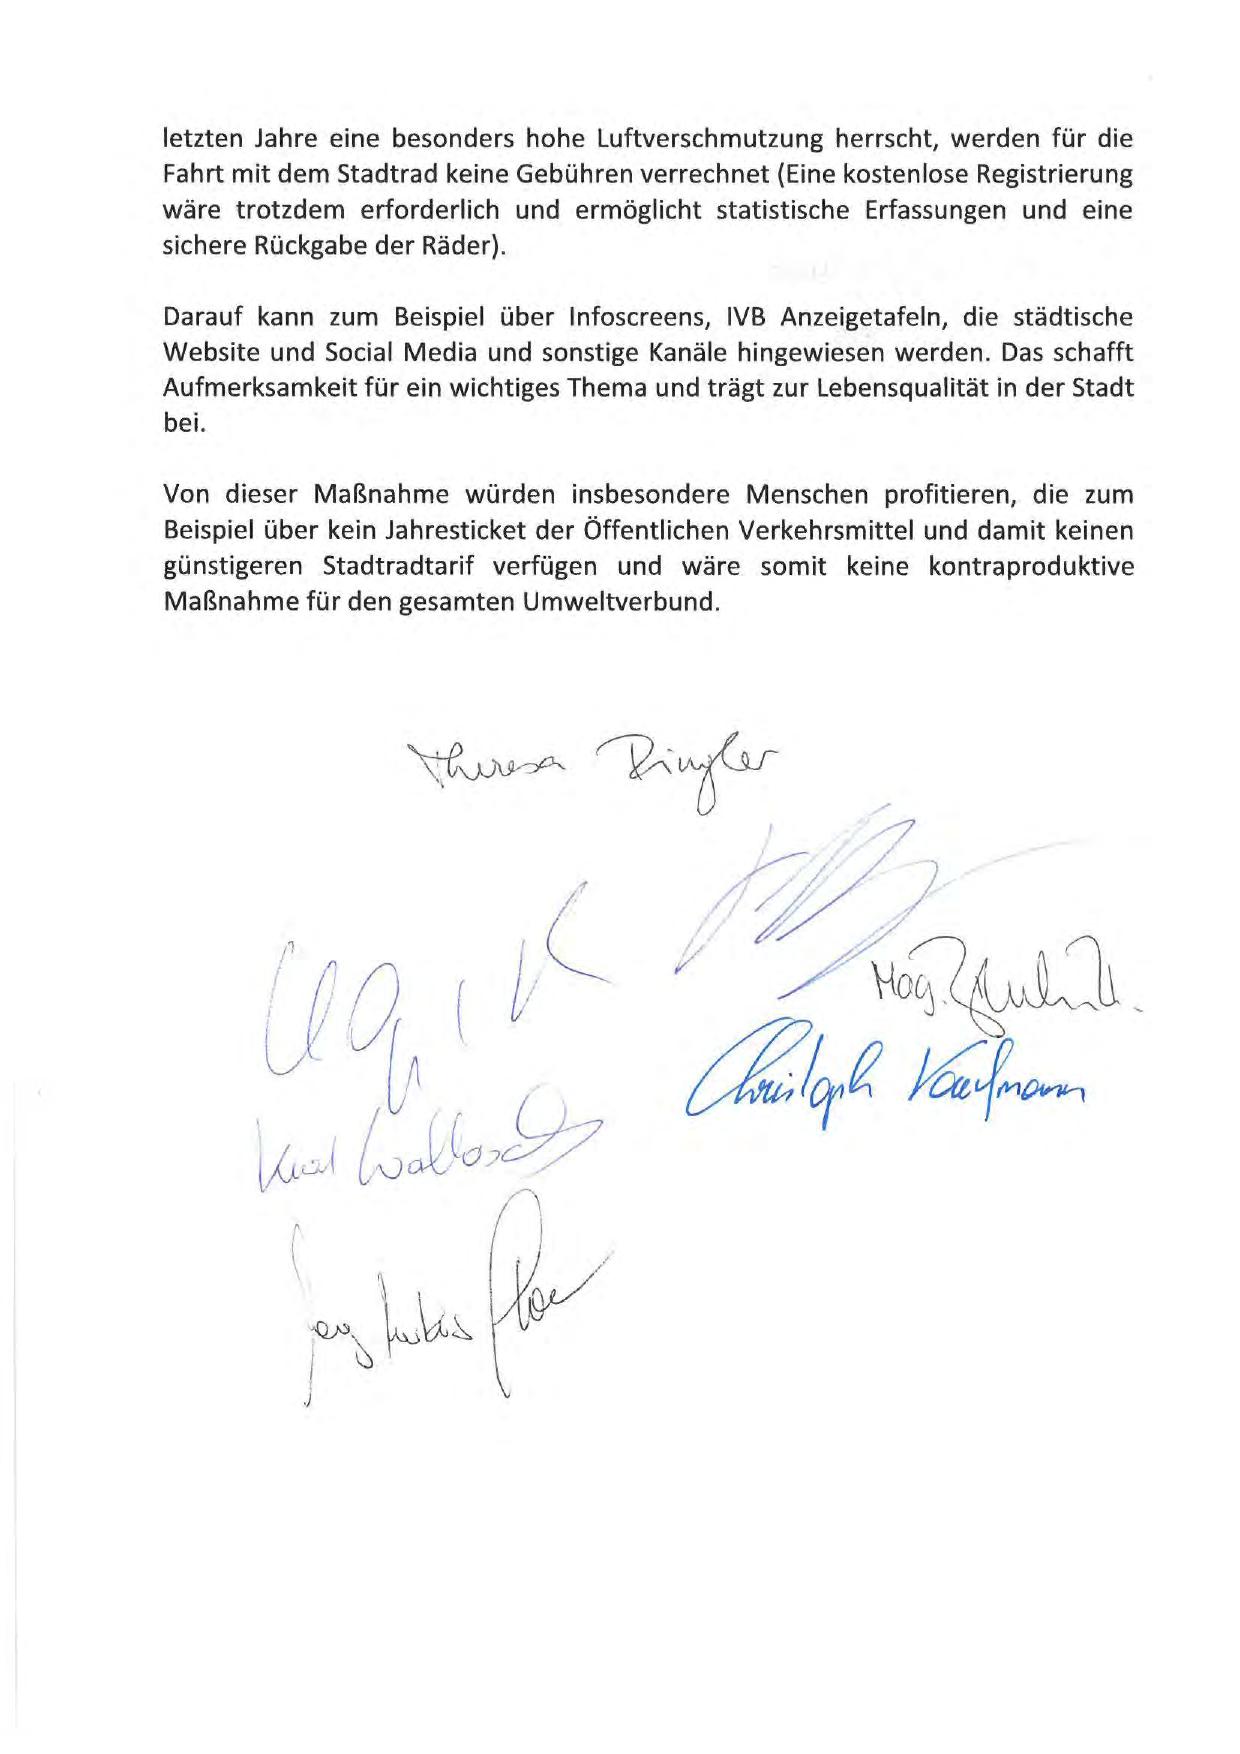 letzten Jahre eine besonders hohe Luftverschmutzung herrscht, werden für die
Fahrt mit dem Stadtrad keine Gebühren verrechnet (Eine kostenlose Registrierung
wäre trotzdem erforderlich und ermöglicht statistische Erfassungen und eine
sichere Rückgabe der Räder).
Darauf kann zum Beispiel über Infoscreens, IVB Anzeigetafeln, die städtische
Website und Social Media und sonstige Kanäle hingewiesen werden. Das schafft
Aufmerksamkeit für ein wichtiges Thema und trägt zur Lebensqualität in der Stadt
bei.
Von dieser Maßnahme würden insbesondere Menschen profitieren, die zum
Beispiel über kein Jahresticket der Öffentlichen Verkehrsmittel und damit keinen
günstigeren Stadtradtarif verfügen und wäre somit keine kontraproduktive
Maßnahme für den gesamten Umweltverbund.
Theresa Ringler
Mag.
Christoph Kaufmann